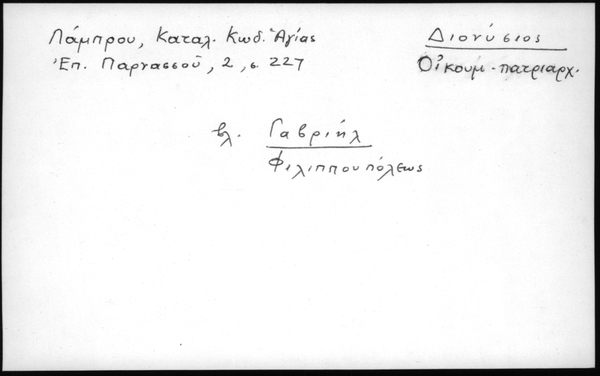 Λάμπρου, Καταλ. Κωδ. Ἁγίας
Ἐπ. Παρνασσοῦ, 2, σ. 227
Διονύσιος
Οἰκουμ. πατριαρχ.
βλ. Γαβριήλ
Φιλιππουπόλεως